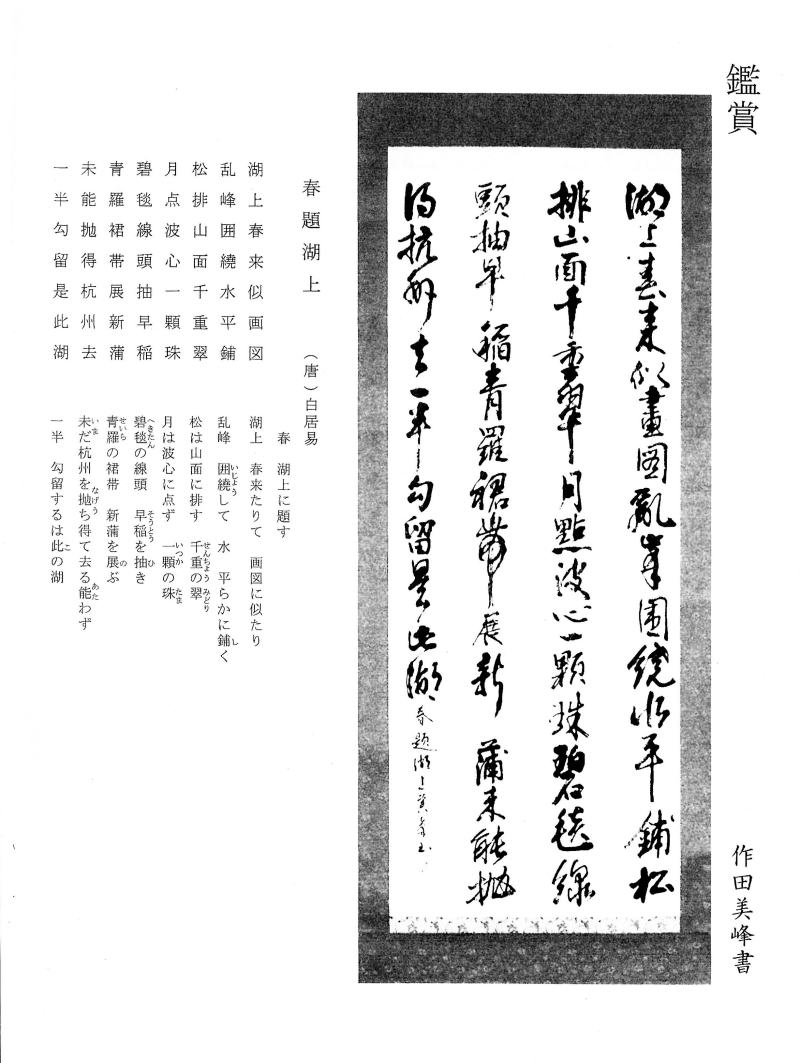 鑑賞
作田美峰書
湖上春来似畫図亂峯囲繞水平鋪松
排山面千重翠月點波心一顆珠碧毯線
頭抽早稲青羅裙帯展新蒲未能抛
得杭州去一半勾留是此湖
春題湖上
春題湖上　（唐）白居易
湖上春来似画図
乱峰囲繞水平鋪
松排山面千重翠
月点波心一顆珠
碧毯線頭抽早稲
青羅裙帯展新蒲
未能抛得杭州去
一半勾留是此湖
春　湖上に題す
湖上　春来たりて　画図に似たり
乱峰　囲繞（いじょう）して　水　平らかに鋪（し）く
松は山面に排す　千重（せんちょう）の翠（みどり）
月は波心に点ず　一顆（いつか）の珠（たま）
碧毯（へきたん）の線頭　早稲（そうとう）を抽（ひ）き
青羅（せいら）の裙帯　新蒲を展（の）ぶ
未（いま）だ杭州を抛（なげう）ち得て去る能（あた）わず
一半　勾留するは此（こ）の湖